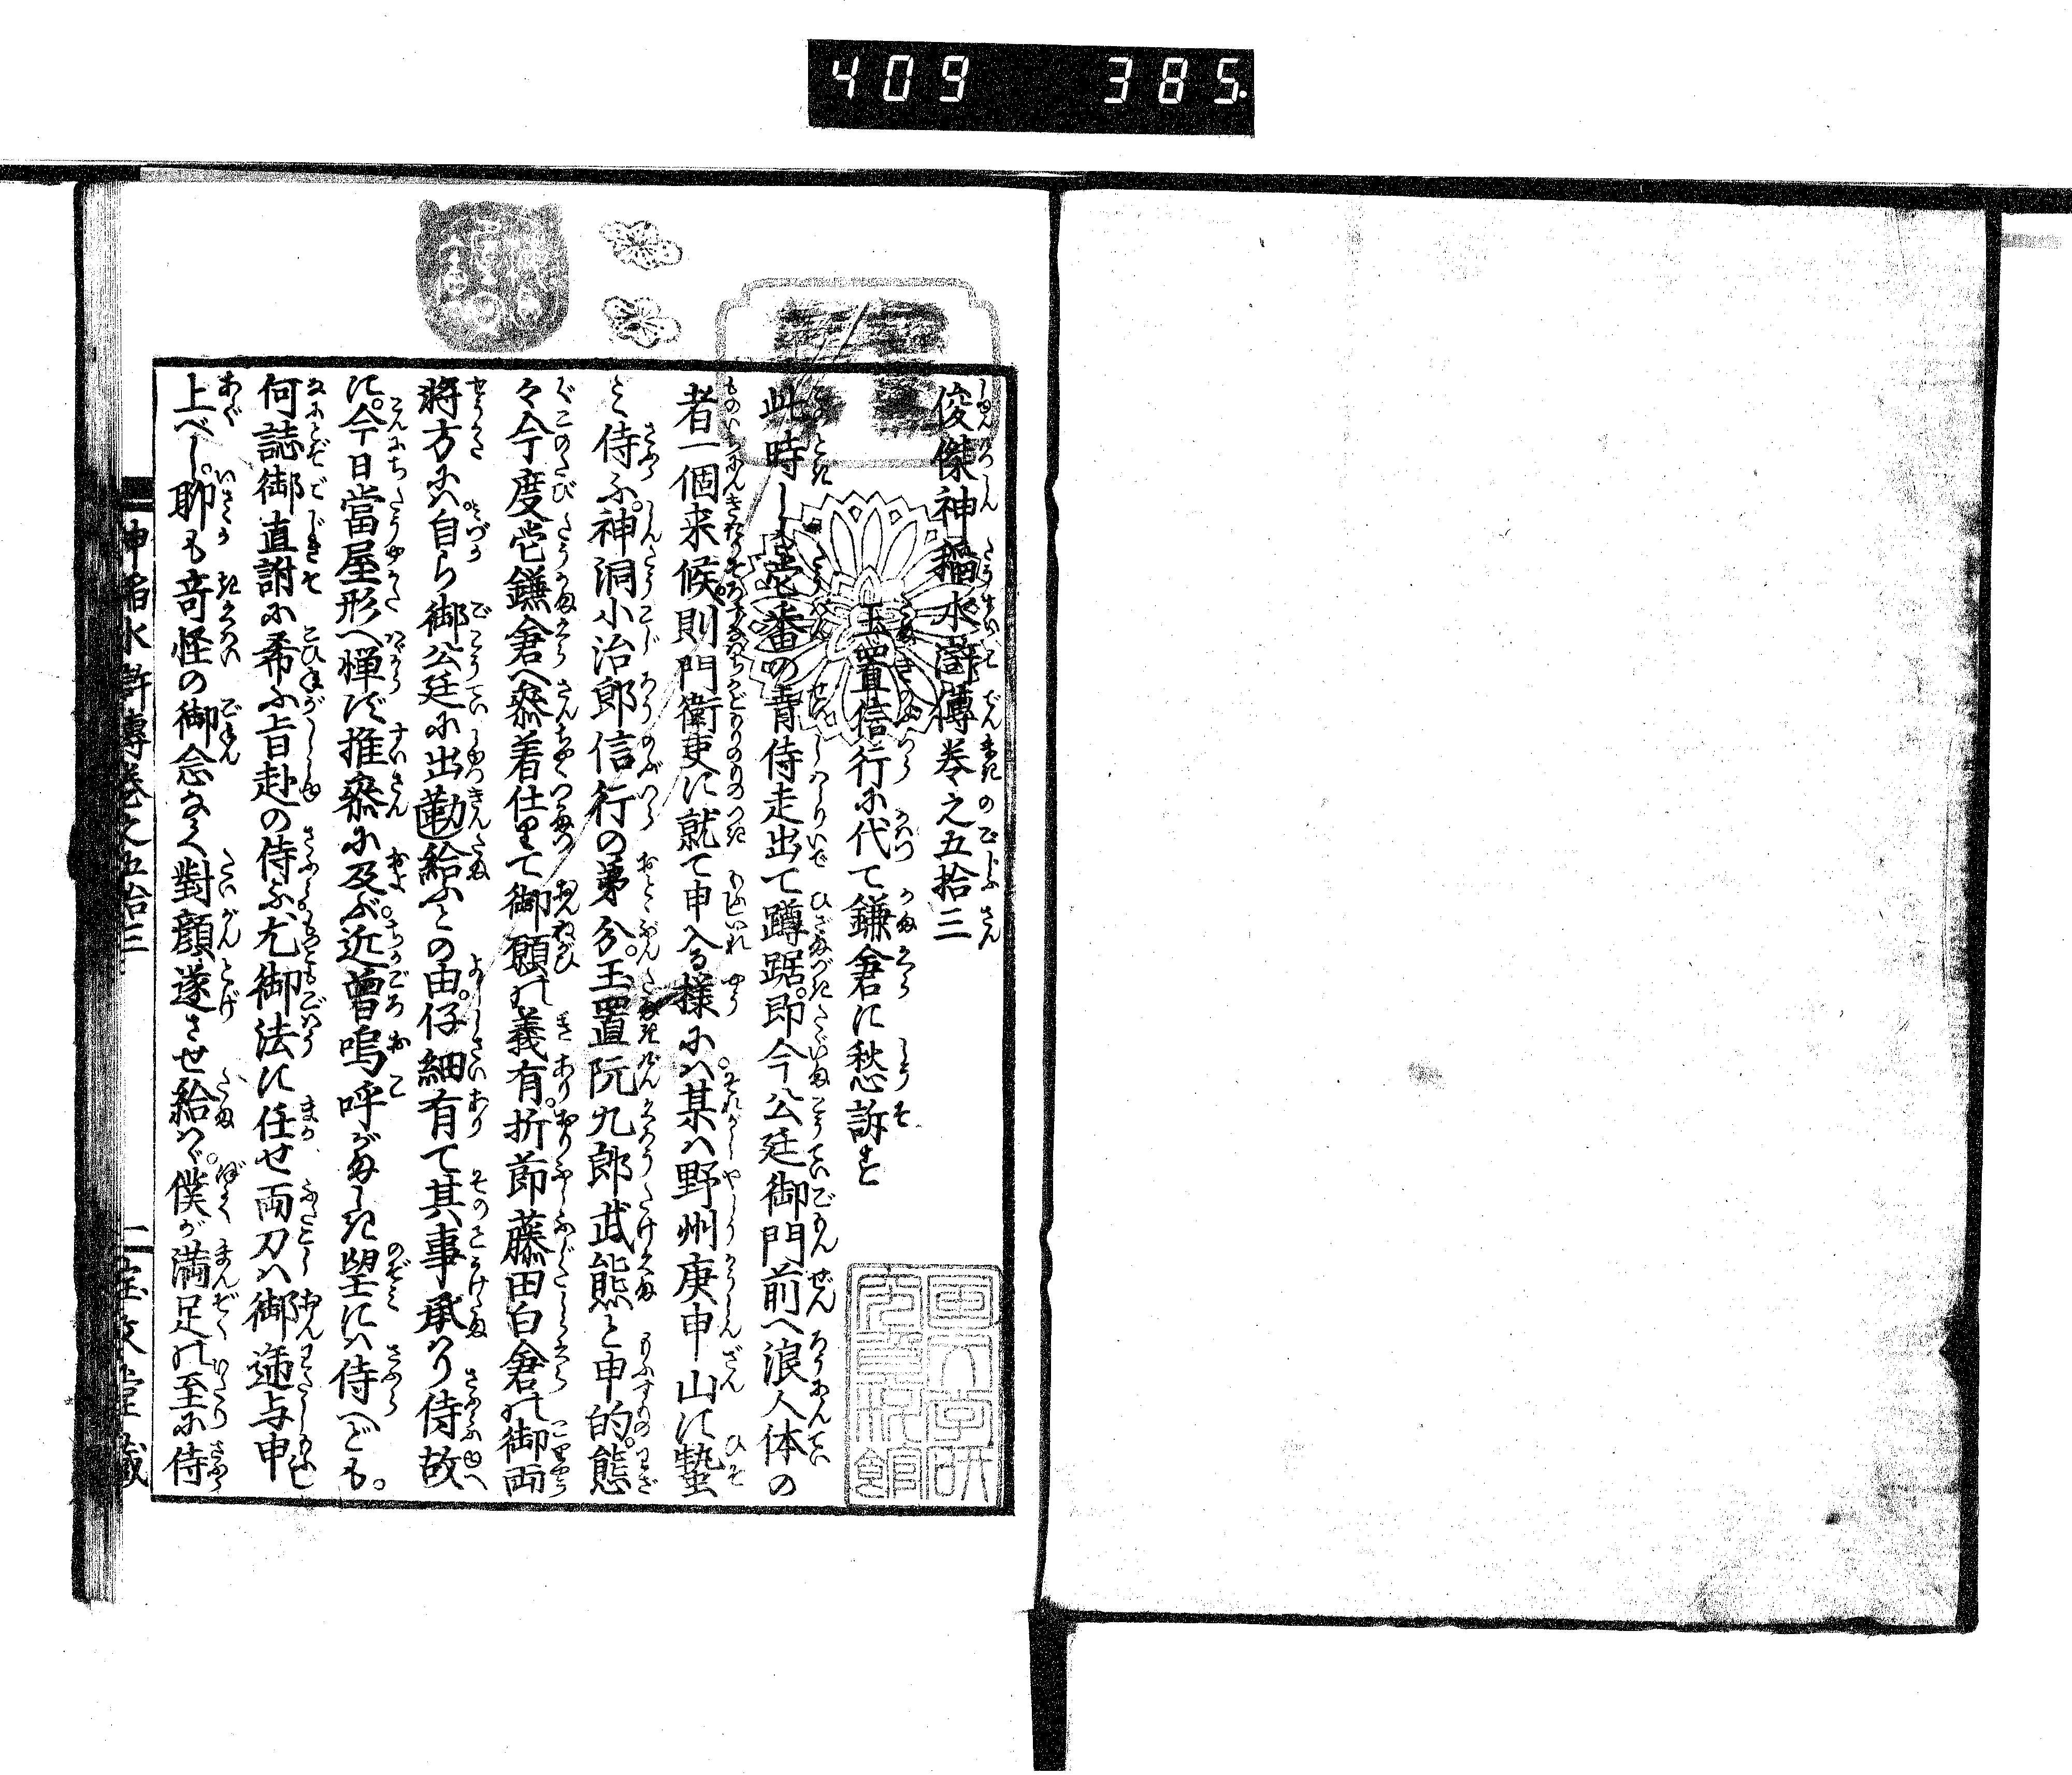 409 385
俊傑神稲水滸傳巻之五拾三
玉置信行に代て鎌倉に愁訴す
此時しも壱番の青侍走出て蹲踞。即今公廷御門前へ浪人体の
者一個来候。則門衛吏に就て申入る様にハ。某ハ野州庚申山に蟄
と侍ふ。神洞小治郎信行の弟分。玉置阮九郎武熊と申的。態
々今度鎌倉へ参着仕りて御願の義有。折節藤田白倉の御両
将方にハ。自ら御公廷に出勤給ふとの由。仔細有て其事承ハり侍故
に。今日當屋形へ憚ず推参に及ぶ。近曽嗚呼がましき望にハ侍へども。
何誌御直訴に希ふ旨赴の侍ふ。尤御法に任せ両刀ハ御逓与申
上べし。聊も奇怪の御念なく對顔遂させ給ハゞ。僕が満足の至に侍
神稲水滸傳巻之五拾三